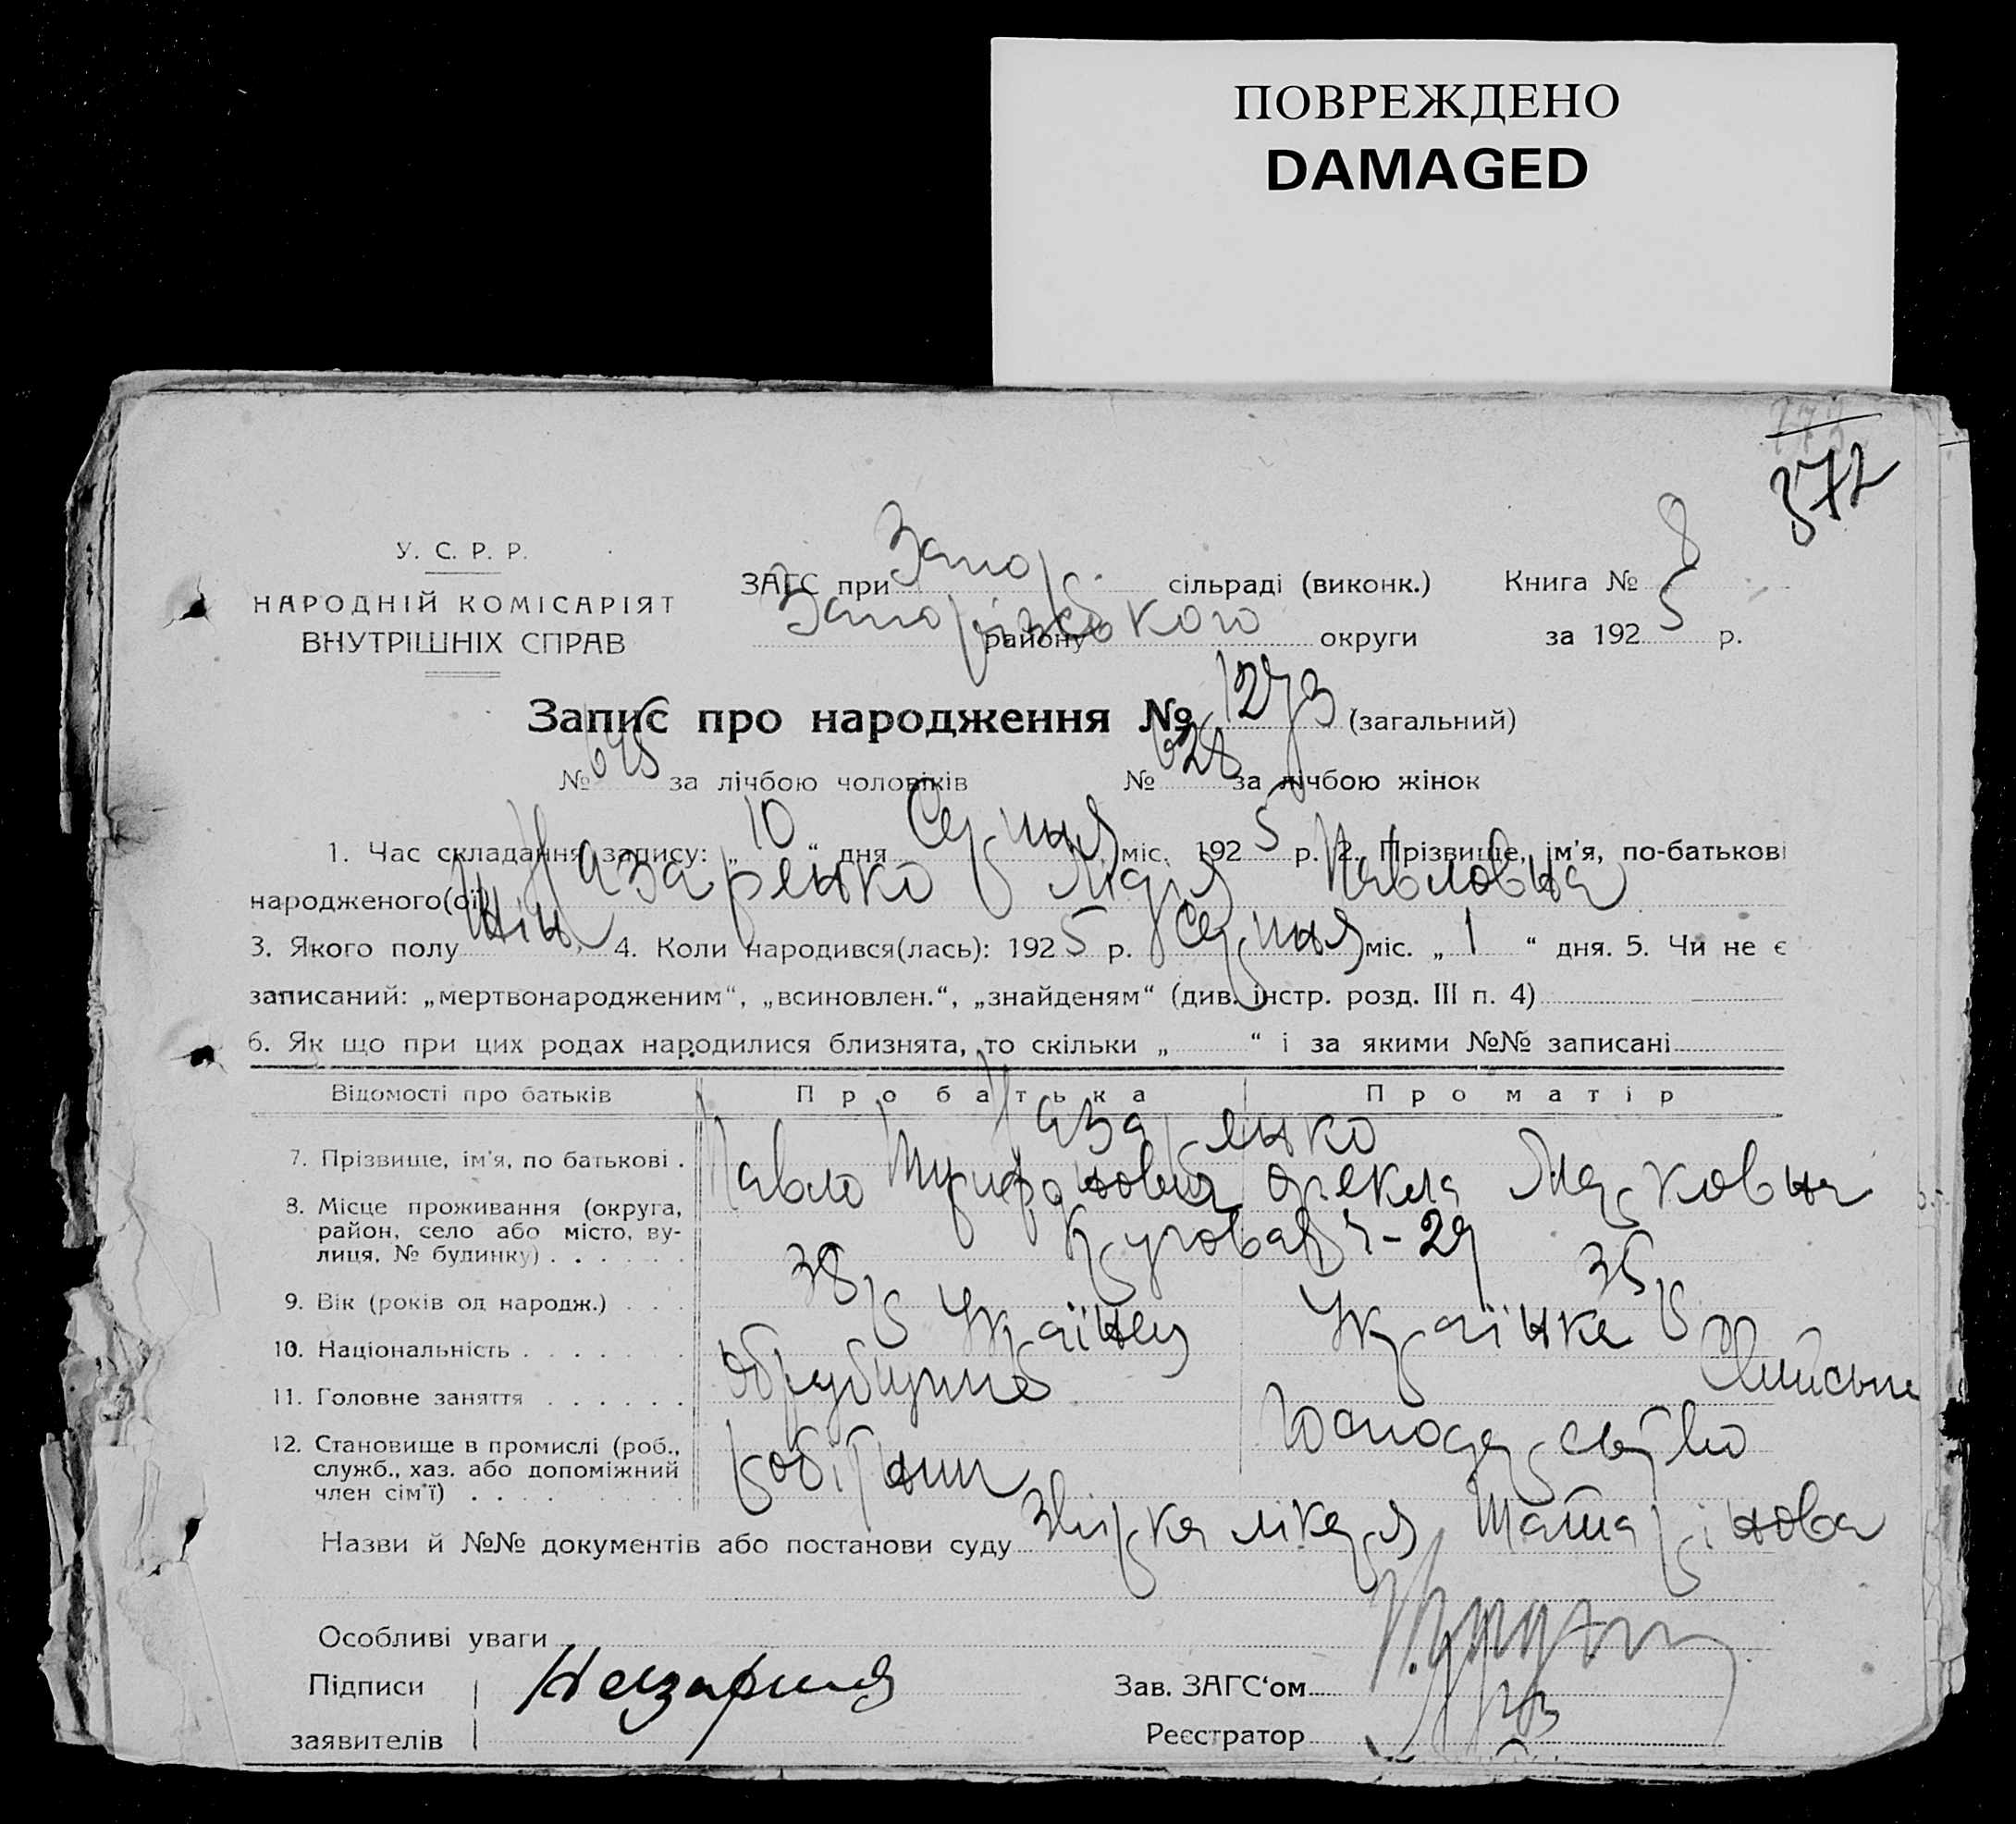 ПОВРЕЖДЕНО
DAMAGED
372
У. С. Р. Р.
НАРОДНІЙ КОМІСАРІЯТ
ВНУТРІШНІХ СПРАВ
ЗАГС при Запор. сільраді (виконк.) Книга № 8
Запорізького району округи за 1925 р.
Запис про народження № 1273 (загальний)
№ 645 за лічбою чоловіків № 628 за лічбою жінок
1. Час складання запису: „ 10 “ дня Серпня міс. 1925 р. 2. Прізвище, ім'я, по-батькові
народженого(ої) Назаренко Марія Павловна
3. Якого полу жін. 4. Коли народився(лась): 1925 р. Серпня міс. „ 1 “ дня. 5. Чи не є
записаний: „мертвонародженим“, „всиновлен.“, „знайденям“ (див. інстр. розд. III п. 4)
6. Як що при цих родах народилися близнята, то скільки „ “ і за якими №№ записані
Відомості про батьків Про батька Про матір
Назаренко
7. Прізвище, ім'я, по батькові . Павло Трифонович Фекла Марковна
8. Місце проживання (округа,
район, село або місто, ву-
лиця, № будинку) . . . . . . Кругова 29
9. Вік (років од народж.) . . . 38 р 35 р
10. Національність . . . . . . . Українец Українка
11. Головне заняття . . . . . . Обрубщик Хатнє
12. Становище в промислі (роб.,
служб., хаз. або допоміжний
член сім'ї) . . . . робітник господарство
Назви й №№ документів або постанови суду лікаря
Особливі уваги
Підписи
заявителів
Зав. ЗАГС‘ом
Реєстратор